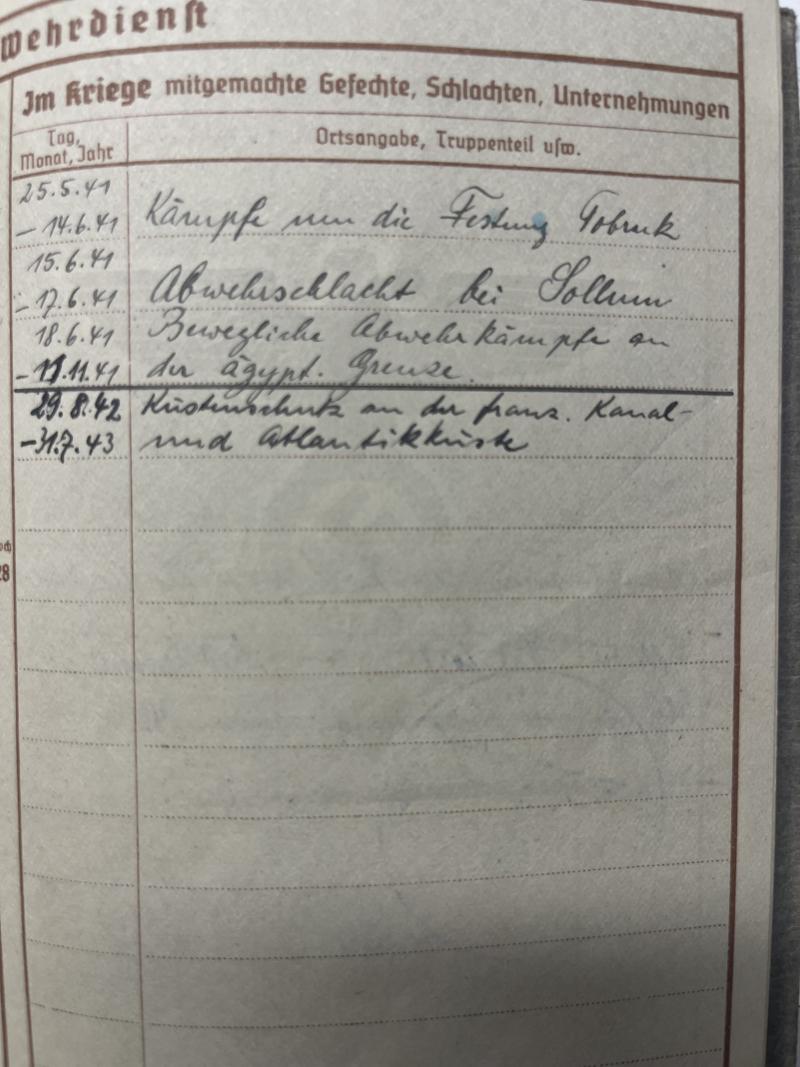 Wehrdienst
Im Kriege mitgemachte Gefechte, Schlachten, Unternehmungen
Tag,
Monat, Jahr
Ortsangabe, Truppenteil usw.
25.5.41
– 14.6.41 Kämpfe um die Festung Tobruk
15.6.41
– 17.6.41 Abwehrschlacht bei Sollum
18.6.41 Bewegliche Abwehrkämpfe an
– 17.11.41 der ägypt. Grenze.
29.8.42 Küstenschutz an der franz. Kanal-
–31.7.43 und Atlantikküste
28